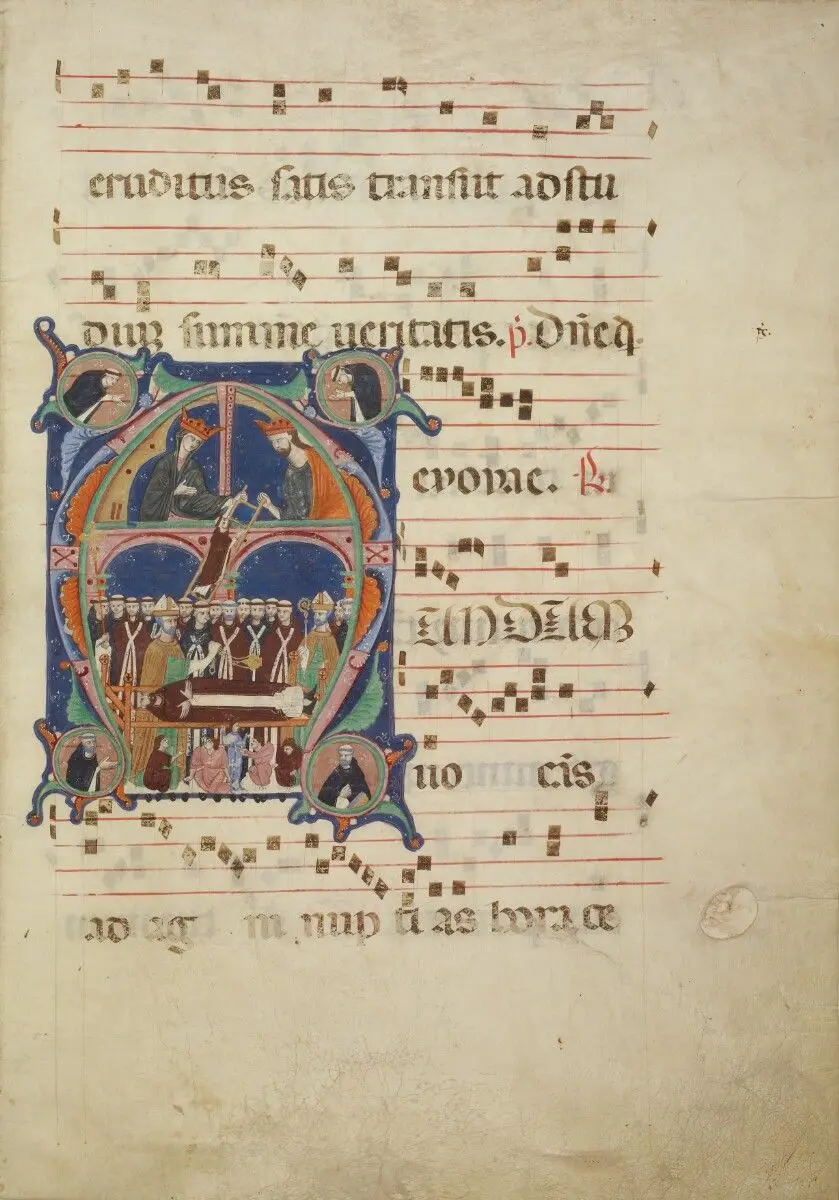 eruditus satis transiit ad stu
dium summe ueritatis. p̄. Dn̄e q.
euouae. R.
AD AG
uo cis
ad ag ni nup ti as hora ce